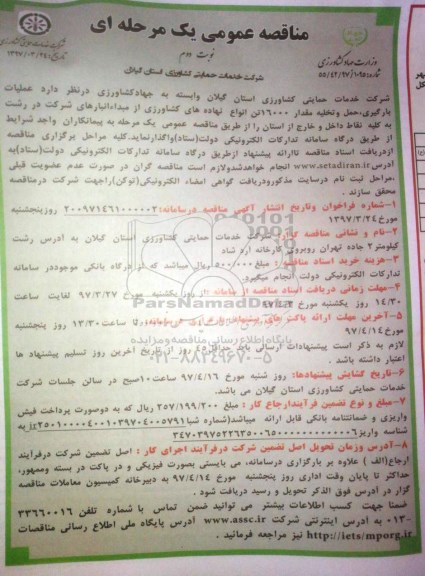 مناقصه عمومی یک مرحله ای
نوبت دوم
وزارت جهاد کشاورزی
شرکت خدمات حمایتی کشاورزی استان گیلان
شرکت خدمات حمایتی کشاورزی استان گیلان وابسته به جهادکشاورزی درنظر دارد عملیات
بارگیری،حمل و تخلیه مقدار ۱۶۰۰۰تن انواع نهاده های کشاورزی از مبداءانبارهای شرکت در رشت
به کلیه نقاط داخل و خارج از استان را از طریق مناقصه عمومی یک مرحله به پیمانکاران واجد شرایط
از طریق درگاه سامانه تدارکات الکترونیکی دولت(ستاد)واگذارنماید.کلیه مراحل برگزاری مناقصه
ازدریافت اسناد مناقصه تاارائه پیشنهاد ازطریق درگاه سامانه تدارکات الکترونیکی دولت(ستاد)به
آدرس www.setadiran.ir انجام خواهدشدولازم است مناقصه گران در صورت عدم عضویت قبلی
،مراحل ثبت نام درسایت مذکورودریافت گواهی امضاء الکترونیکی(توکن)راجهت شرکت درمناقصه
محقق سازند .
۱-شماره فراخوان وتاریخ انتشار آگهی مناقصه درسامانه: ۲۰۰۹۷۱۴۶۱۰۰۰۰۰۲ روزپنجشنبه
مورخ ۱۳۹۷/۳/۲۴
۲-نام و نشانی مناقصه گزار: شرکت خدمات حمایتی کشاورزی استان گیلان به آدرس رشت
کیلومتر۲ جاده تهران روبروی کارخانه ارد شاد
۳-هزینه خرید اسناد مناقصه: مبلغ ۵۰۰/۰۰۰ ریال میباشد که از درگاه بانکی موجوددر سامانه
تدارکات الکترونیکی دولت انجام میگیرد
۴-مهلت زمانی دریافت اسناد مناقصه از سامانه :از روز یکشنبه مورخ ۹۷/۳/۲۷ لغایت ساعت
۱۴/۳۰ روز یکشنبه مورخ
۵-آخرین مهلت ارائه پاکت های پیشنهاد تا ساعت ۱۳/۳۰ روز پنجشنبه
مورخ ۹۷/۴/۱۴
لازم به ذکر است پیشنهادات ارسالی باید روز از تاریخ آخرین روز تسلیم پیشنهاد ها
اعتبار داشته باشد .
۶-تاریخ گشایش پیشنهادها: روز شنبه مورخ ۹۷/۴/۱۶ ساعت ۱۰صبح در سالن جلسات شرکت
خدمات حمایتی کشاورزی استان گیلان می باشد.
۷-مبلغ و نوع تضمین فرآیندارجاع کار : مبلغ ۳۵۷/۱۹۹/۲۰۰ ریال که به دوصورت پرداخت فیش
واریزی و ضمانتنامه بانکی قابل ارائه میباشد(شماره شبا
شناسه واریز
۸-آدرس وزمان تحویل اصل تضمین شرکت درفرآیند اجرای کار : اصل تضمین شرکت درفرآیند
ارجاع(الف ) علاوه بر بارگزاری درسامانه، می بایستی بصورت فیزیکی و در پاکت در بسته وممهور،
حداکثر تا پایان وقت اداری روز پنجشنبه مورخ ۹۷/۴/۱۴ به دبیرخانه کمیسیون معاملات مناقصه
گزار در آدرس فوق الذکر تحویل و رسید دریافت شود .
ضمنا جهت کسب اطلاعات بیشتر می توانید ضمن تماس با شماره تلفن ۳۳۶۶۰۰۱۶
-۰۱۳ به آدرس اینترنتی شرکت www.assc.ir آدرس پایگاه ملی اطلاع رسانی مناقصات
http://iets/mporg.ir نیز مراجعه فرمائید .
ParsNamadData
پایگاه اطلاع رسانی مناقصه و مزایده
۰۲۱-۸۸۳۴۹۶۷۰-۵